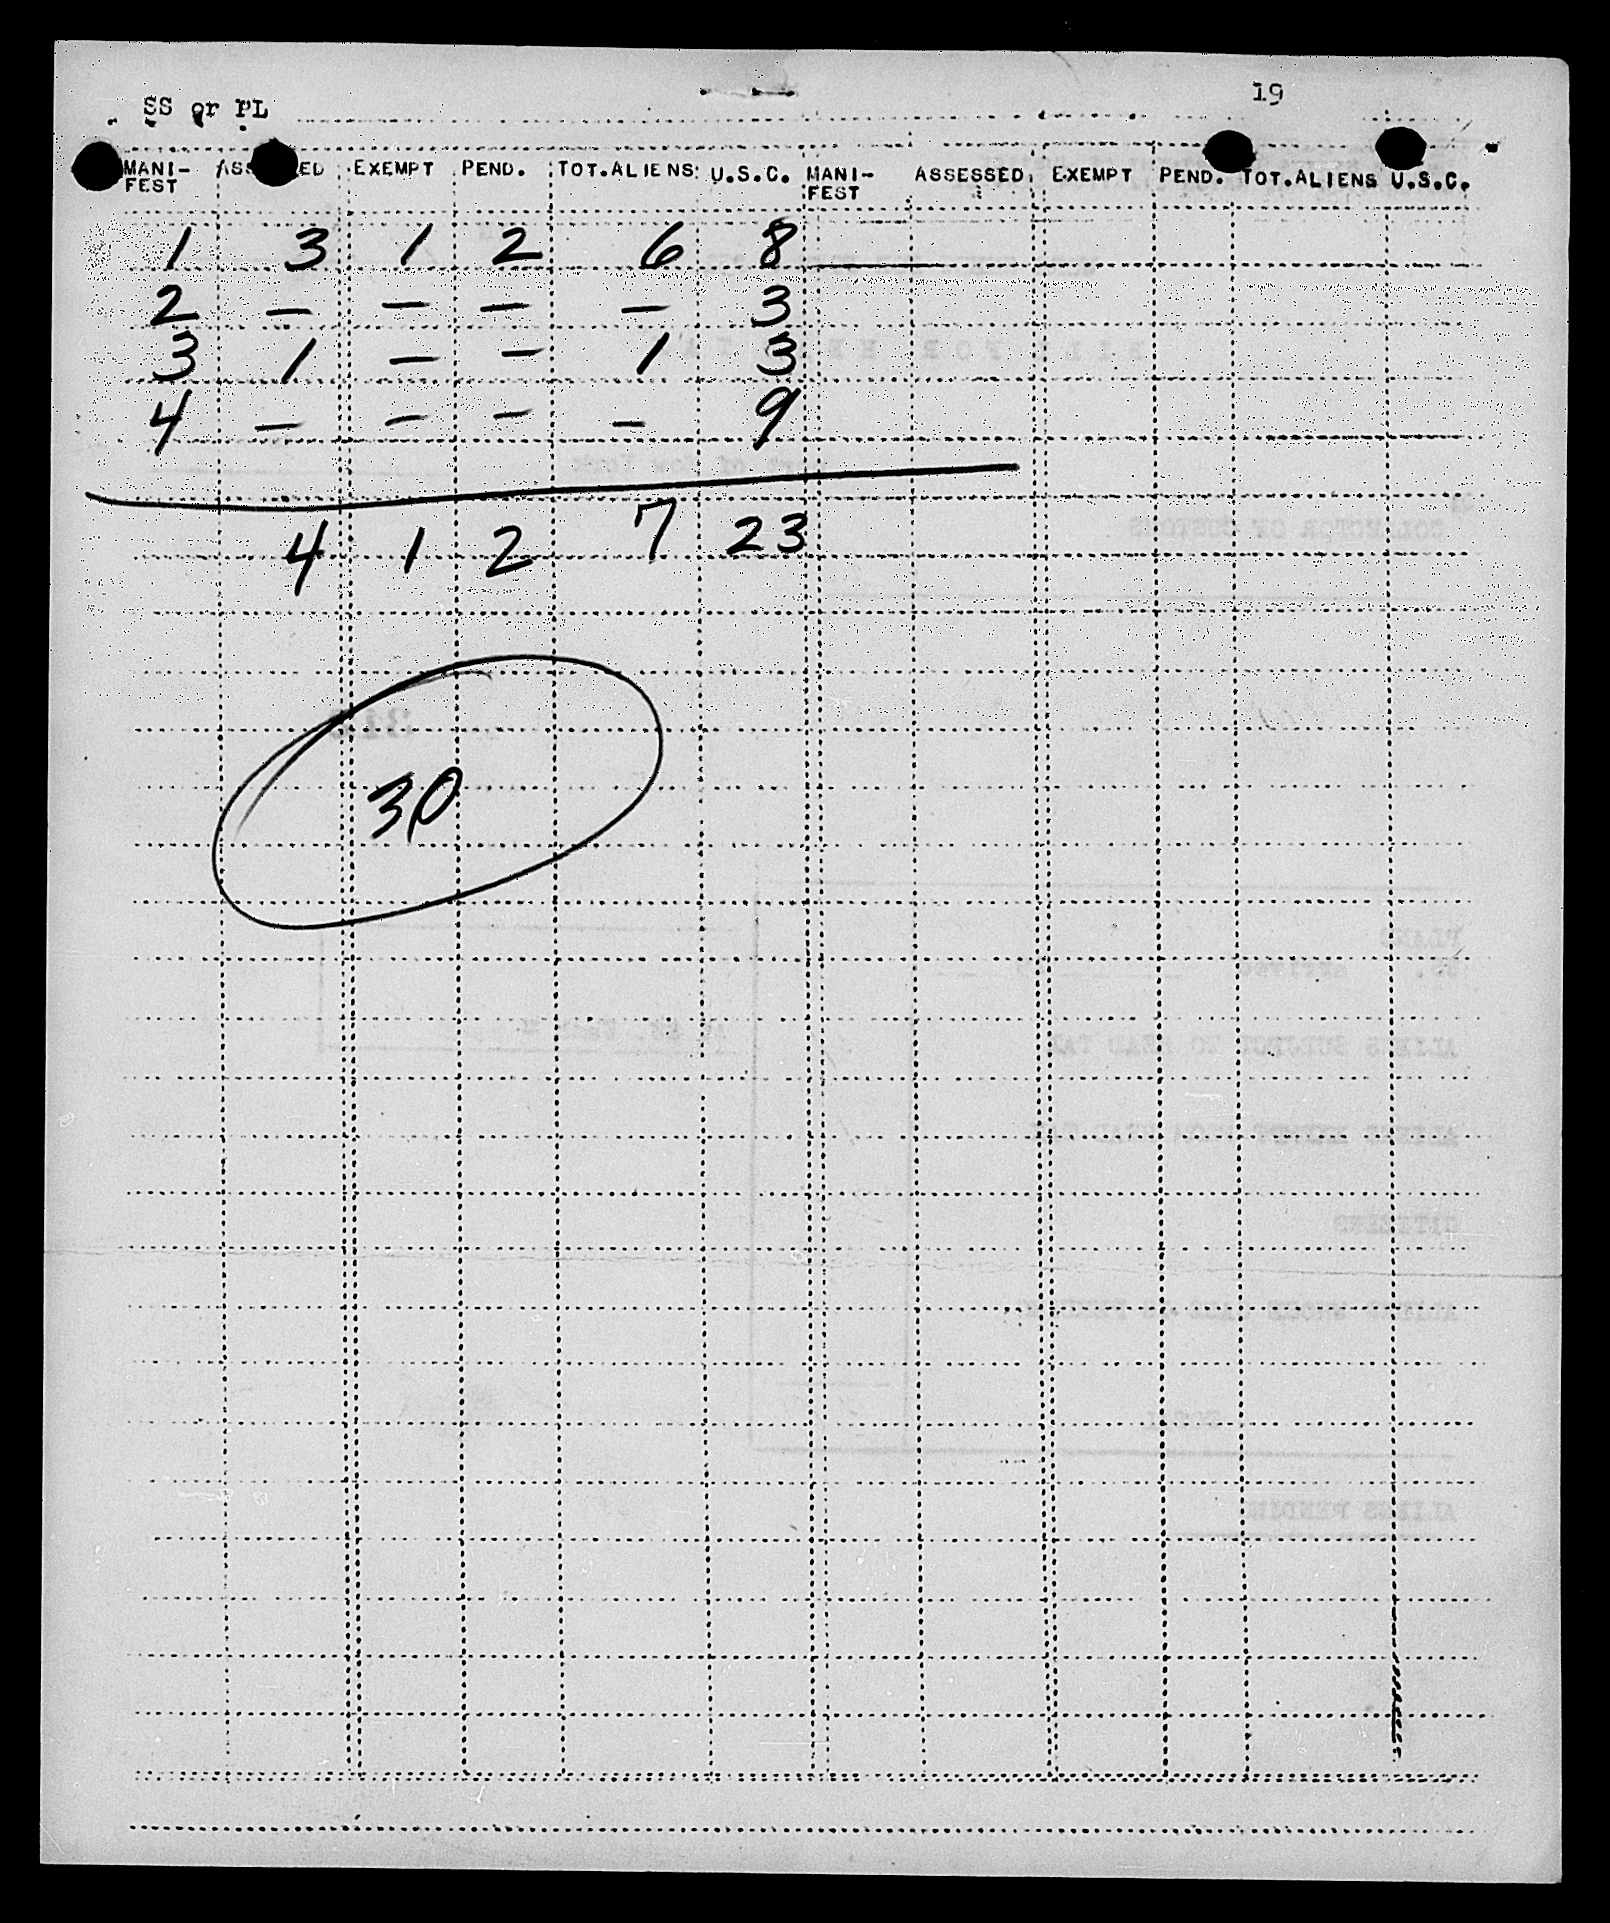 SS or PL 19
MANI-FEST ASSESSED EXEMPT PEND. TOT.ALIENS U.S.C. MANI-FEST ASSESSED EXEMPT PEND. TOT.ALIENS U.S.C.
1 3 1 2 6 8
2 — — — — 3
3 1 — — 1 3
4 — — — — 9
4 1 2 7 23
30